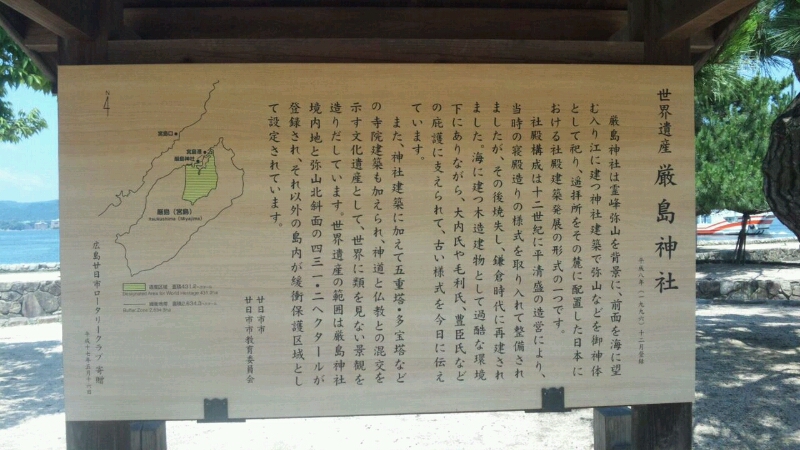 世界遺産 厳島神社
平成八年(一九九六)十二月登録
厳島神社は霊峰弥山を背景に、前面を海に望
む入り江に建つ神社建築で弥山などを御神体
として祀り、遥拝所をその麓に配置した日本に
おける社殿建築発展の形式の一つです。
社殿構成は十二世紀に平清盛の造営により、
当時の寝殿造りの様式を取り入れて整備され
ましたが、その後焼失し、鎌倉時代に再建され
ました。海に建つ木造建物として過酷な環境
下にありながら、大内氏や毛利氏、豊臣氏など
の庇護に支えられて、古い様式を今日に伝え
ています。
また、神社建築に加えて五重塔・多宝塔など
の寺院建築も加えられ、神道と仏教との混交を
示す文化遺産として、世界に類を見ない景観を
造りだしています。世界遺産の範囲は厳島神社
境内地と弥山北斜面の四三一・二ヘクタールが
登録され、それ以外の島内が緩衝保護区域とし
て設定されています。
廿日市市
廿日市市教育委員会
N
宮島口
宮島港
厳島神社
厳島(宮島)
Itsukushima (Miyajima)
広島廿日市ロータリークラブ 寄贈